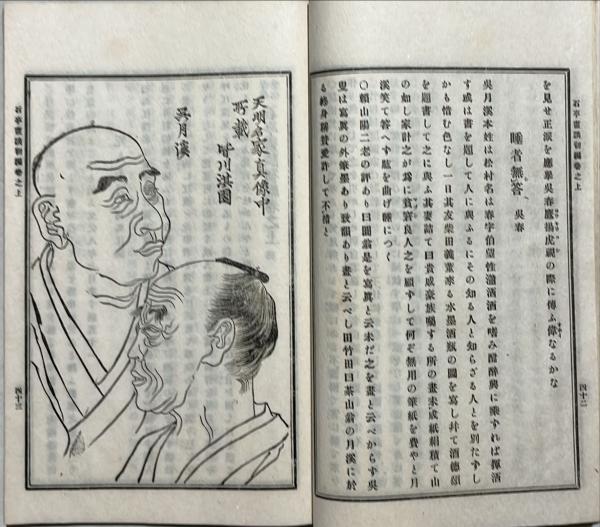 石亭畫談初編卷之上
四十二
を見せ正派を應擧吳春鷹揚虎視の際に傳ふ偉なるかな
睡者無答 吳春
吳月溪本性は松村名は春字伯望性瀟洒酒を嗜み酣醉興に乘すれば揮洒
す或は書を題して人に與ふるにその知る人と知らざる人とを別たずし
かも惜む色なし一日其友柴田義董來る水墨酒瓶の圖を寫し幷て酒德頌
を題書して之に與ふ其妻詰て曰貴戚豪族囑する所の畫未成紙絹積て山
の如し家計之が爲に貧窶良人之を顧ずして何ぞ無用の筆紙を費やと月
溪笑て答へず肱を曲げ睡につく
〇賴山陽二老の評あり曰圓翁是を寫眞と云未だ之を畫と云べからず吳
叟は寫眞の外筆墨あり致韻あり畫と云べし田竹田曰茶山翁の月溪に於
る終身賞贊愛許して不惜と
天明名家眞像中
所載
皆川淇園
吳月溪
石亭畫談初編卷之上
四十三